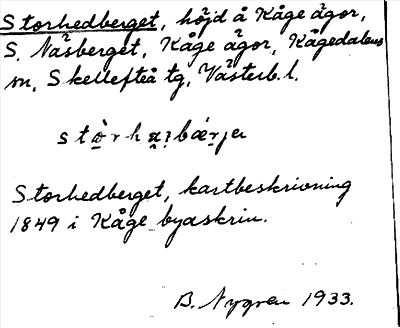 Storhedberget, höjd å Kåge ägor,
S. Näsberget, Kåge ägor, Kågedalens
m, Skellefteå tg, Västerb. l.
Storhedberget, kartbeskrivning
1849 i Kåge byaskrin.
B. Nygren 1933.